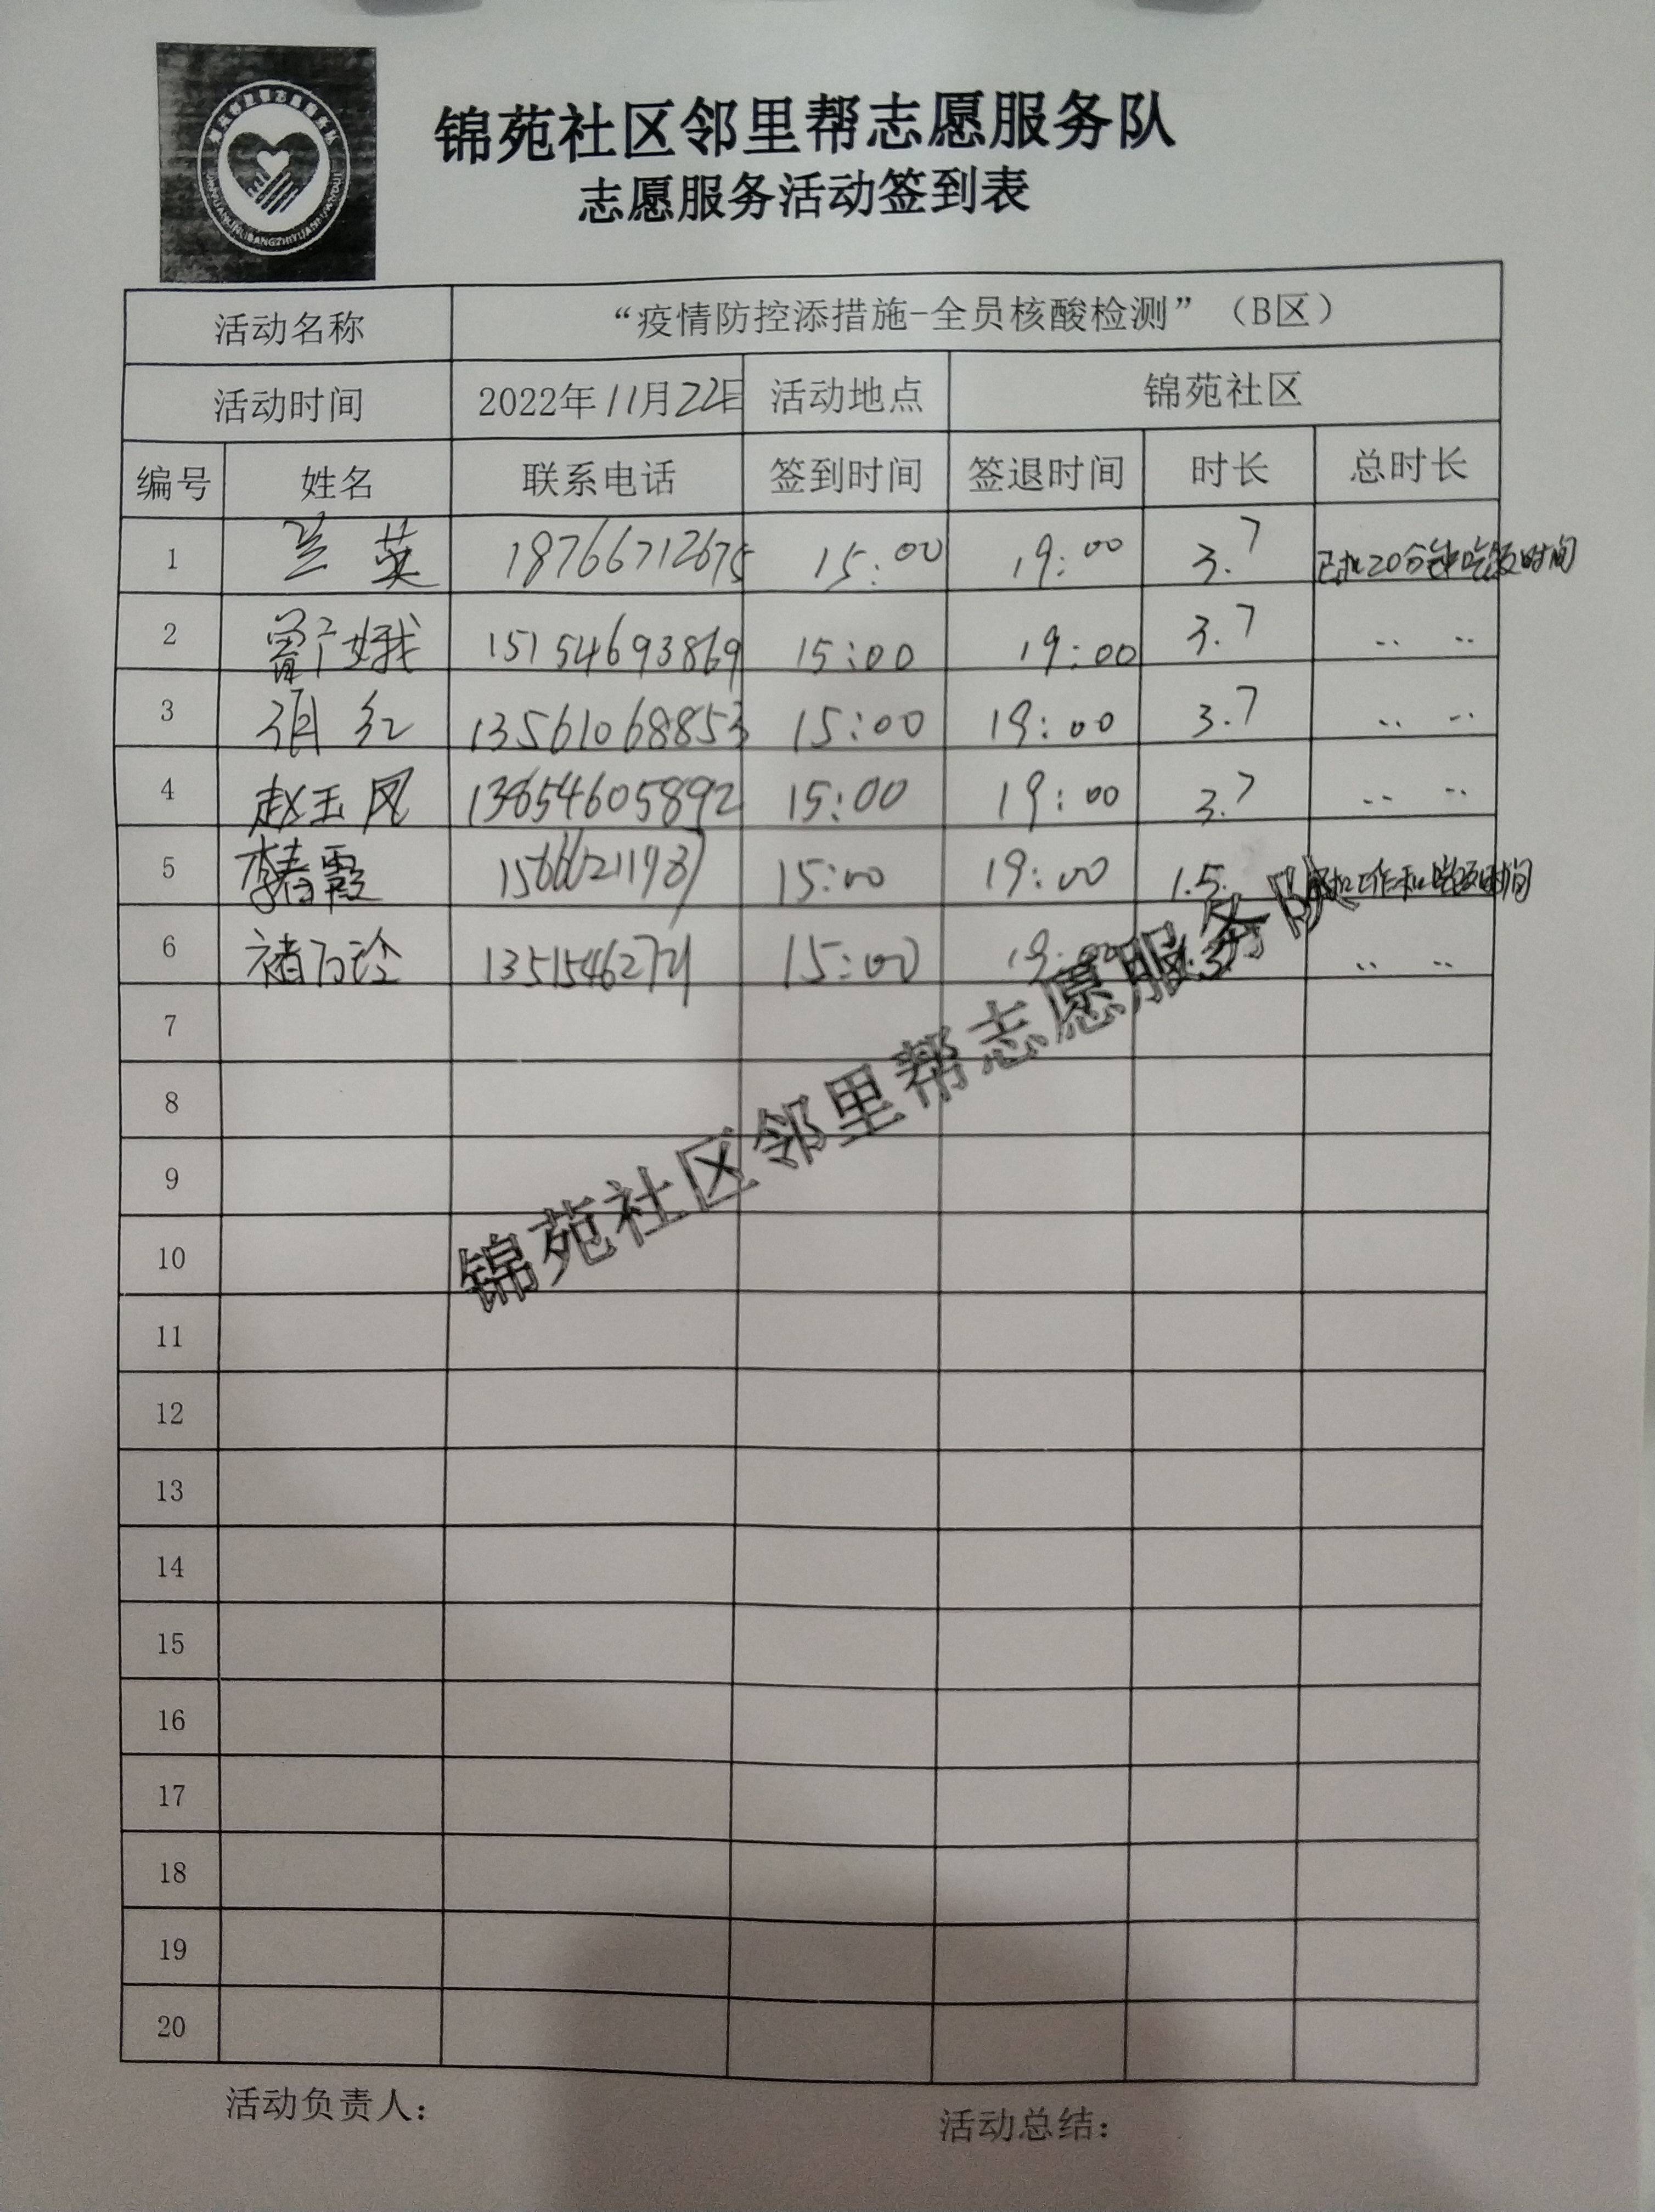 锦苑社区邻里帮志愿服务队
志愿服务活动签到表
活动名称 “疫情防控添措施-全员核酸检测”(B区)
活动时间 2022年11月22日 活动地点 锦苑社区
编号 姓名 联系电话 签到时间 签退时间 时长 总时长
1 兰英 18766712675 15:00 19:00 3.7 已扣20分钟吃饭时间
2 曾广娥 15154693869 15:00 19:00 3.7 ·· ··
3 红 13561068853 15:00 19:00 3.7 ·· ··
4 赵玉凤 13854605892 15:00 19:00 3.7 ·· ··
5 李春霞 15:00 19:00 1.5 扣工作和吃饭时间
6 褚 15:00 19:00 ·· ··
7
8
9
10
11
12
13
14
15
16
17
18
19
20
锦苑社区邻里帮志愿服务队
活动负责人: 活动总结: